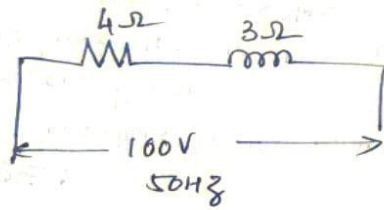 4Ω 3Ω
100V
50Hz